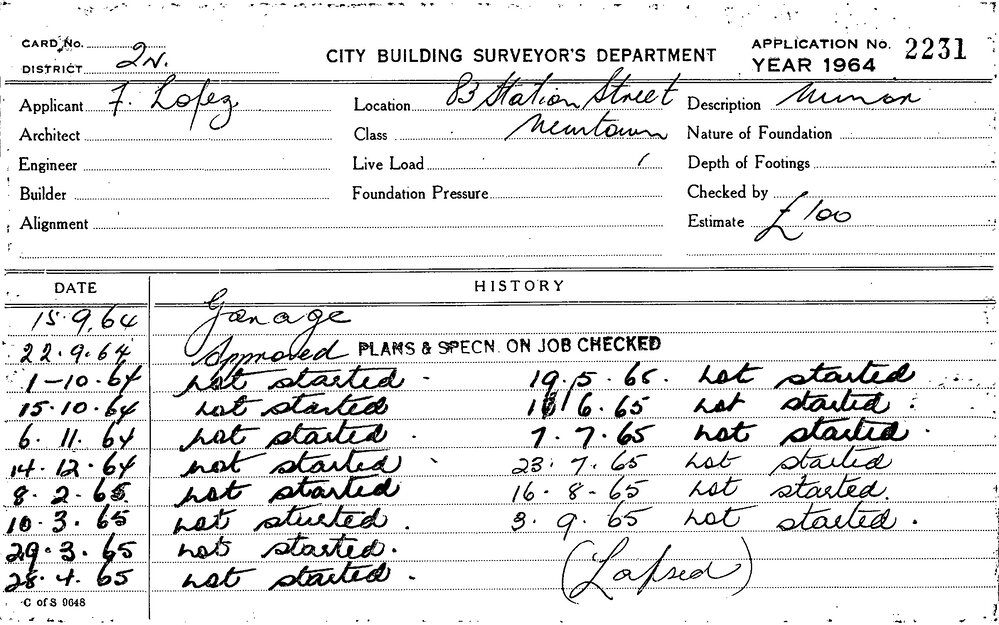 CARD No.
DISTRICT 2N.
CITY BUILDING SURVEYOR'S DEPARTMENT
APPLICATION No. 2231
YEAR 1964
Applicant F. Lopez
Location 83 Station Street
Description Minor
Architect
Class Newtown
Nature of Foundation
Engineer
Live Load
Depth of Footings
Builder
Foundation Pressure
Checked by
Alignment
Estimate £100
DATE HISTORY
15.9.64 Garage
22.9.64 Approved PLANS & SPECN. ON JOB CHECKED
1-10.64 not started 19.5.65. not started
15.10.64 not started 6.65 not started.
6.11.64 not started. 7.7.65 not started.
14.12.64 not started 23.7.65 not started
8.2.65 not started 16.8-65 not started.
10.3.65 not started. 3.9.65 not started.
29.3.65 not started.
28.4.65 not started. (Lapsed)
C of S 9648